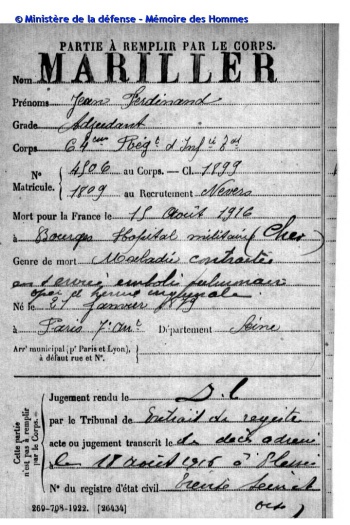 © Ministère de la défense - Mémoire des Hommes
PARTIE À REMPLIR PAR LE CORPS.
Nom MARILLER
Prénoms Jean Ferdinand
Grade Adjudant
Corps 64eme Régt d'Infie Tal
N° Matricule. 4506 au Corps. — Cl. 1899
1809 au Recrutement Nevers
Mort pour la France le 15 Août 1916
à Bourges Hospital militaire (Cher)
Genre de mort Maladie contractée
en service embolie pulmonaire
opon d hernie inguinale
Né le 27 Janvier 1879
à Paris 7eme Département Seine
Arrt municipal (pr Paris et Lyon), à défaut rue et N°.
Cette partie n'est pas à remplir par le Corps.
Jugement rendu le D.C
par le Tribunal de Extrait de registre
acte ou jugement transcrit le de décès adressé
le 18 août 1916 à
N° du registre d'état civil
269-708-1922. [26434]